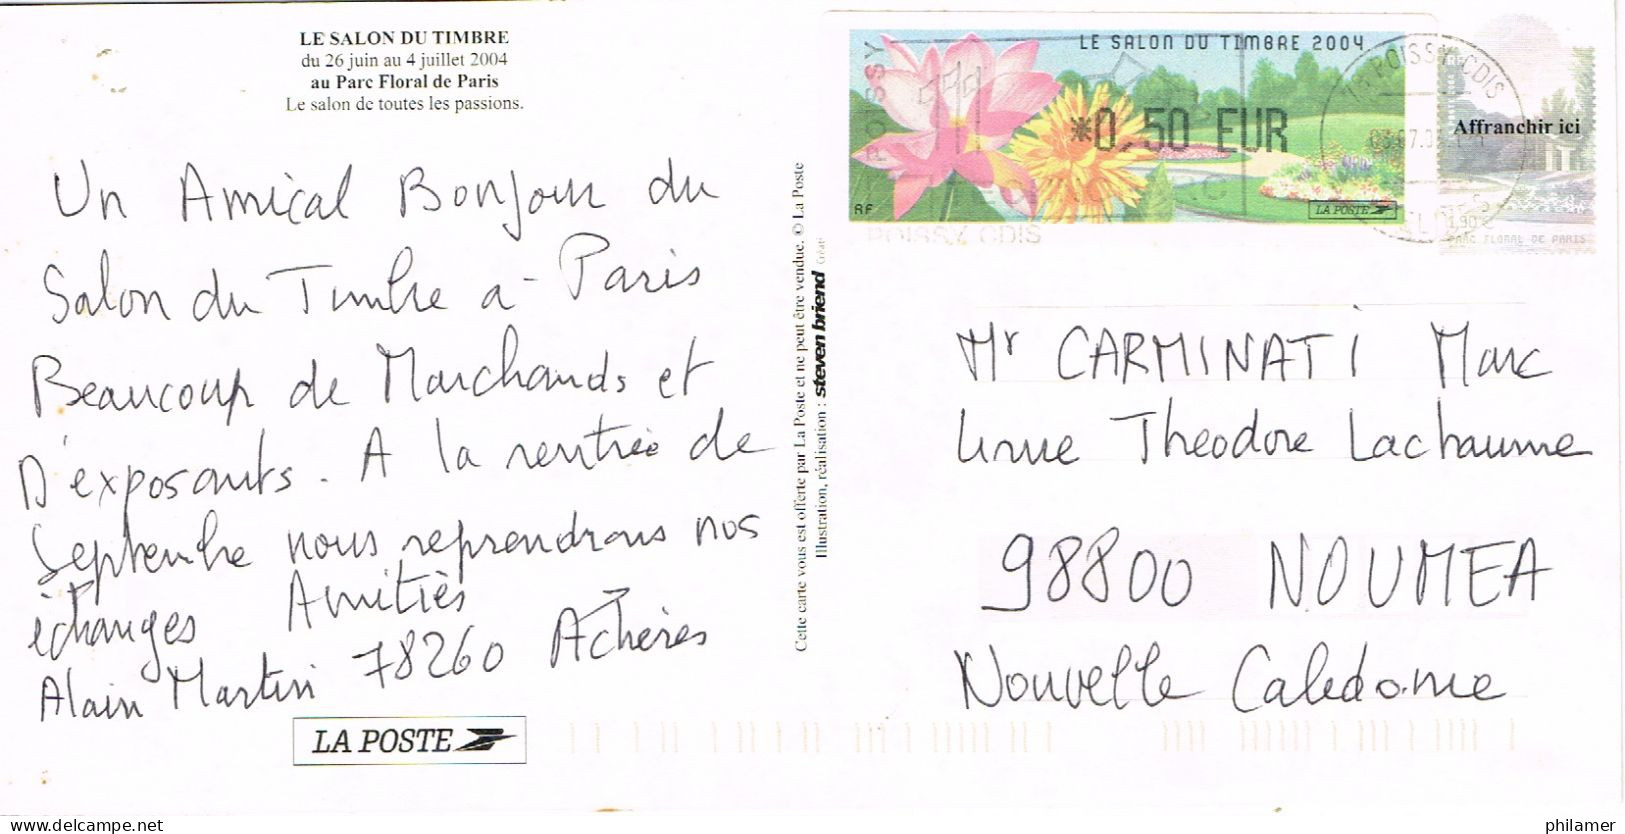 LE SALON DU TIMBRE
du 26 juin au 4 juillet 2004
au Parc Floral de Paris
Le salon de toutes les passions.
Un Amical Bonjour du
Salon du Timbre a Paris
Beaucoup de Marchands et
D'exposants. A la rentrée de
Septembre nous reprendrons nos
échanges Amitiès
Alain Martin 78260 Achères
LA POSTE
Cette carte vous est offerte par La Poste et ne peut être vendue. © La Poste
Illustration, réalisation : steven briend
LE SALON DU TIMBRE 2004
*0,50 EUR
RF
LA POSTE
POISSY CDIS
POISSY CDIS
Affranchir ici
PARC FLORAL DE PARIS
Mr CARMINATI Marc
Theodore Lachaume
98800 NOUMEA
Nouvelle Caledonie
philamer
delcampe.net